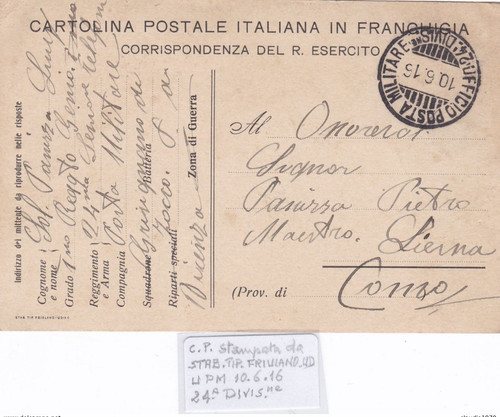 CARTOLINA POSTALE ITALIANA IN FRANCHIGIA
CORRISPONDENZA DEL R. ESERCITO
UFFICIO POSTA MILITARE 24. DIVISne
10.6.16
Indirizzo del mittente da riprodurre nelle risposte
Cognome e nome Panizza
Grado 1mo Reggto Genio
Reggimento e Arma 24ma
Compagnia Posta Militare
Squadrone Batteria
Riparti speciali Vicenza
Zona di Guerra
Al
Signor
Panizza Pietro
Maestro. Lierna
(Prov. di Como)
STAB. TIP. FRIULANO - UDINE
C.P. stampata da
STAB. TIP. FRIULANO. UD
U PM 10.6.16
24ª DIVIS.ne